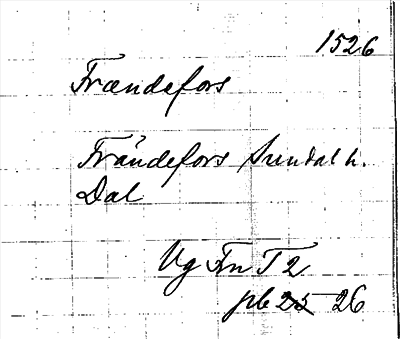 1526
Frændefors
Frändefors Sundal h.
Dal
Vg Fn T 2
pb 25 26